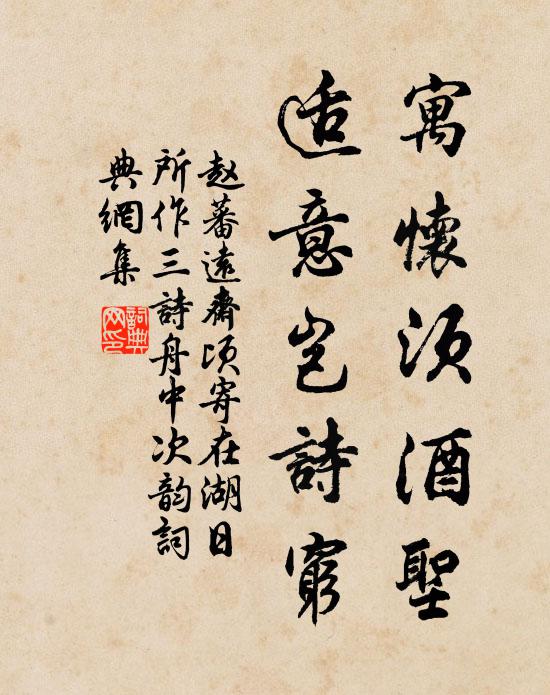 寓懷須酒聖
适意豈詩窮
赵蕃遠齋頃寄在湖日
所作三詩舟中次韵詞
典網集
詞典
网印